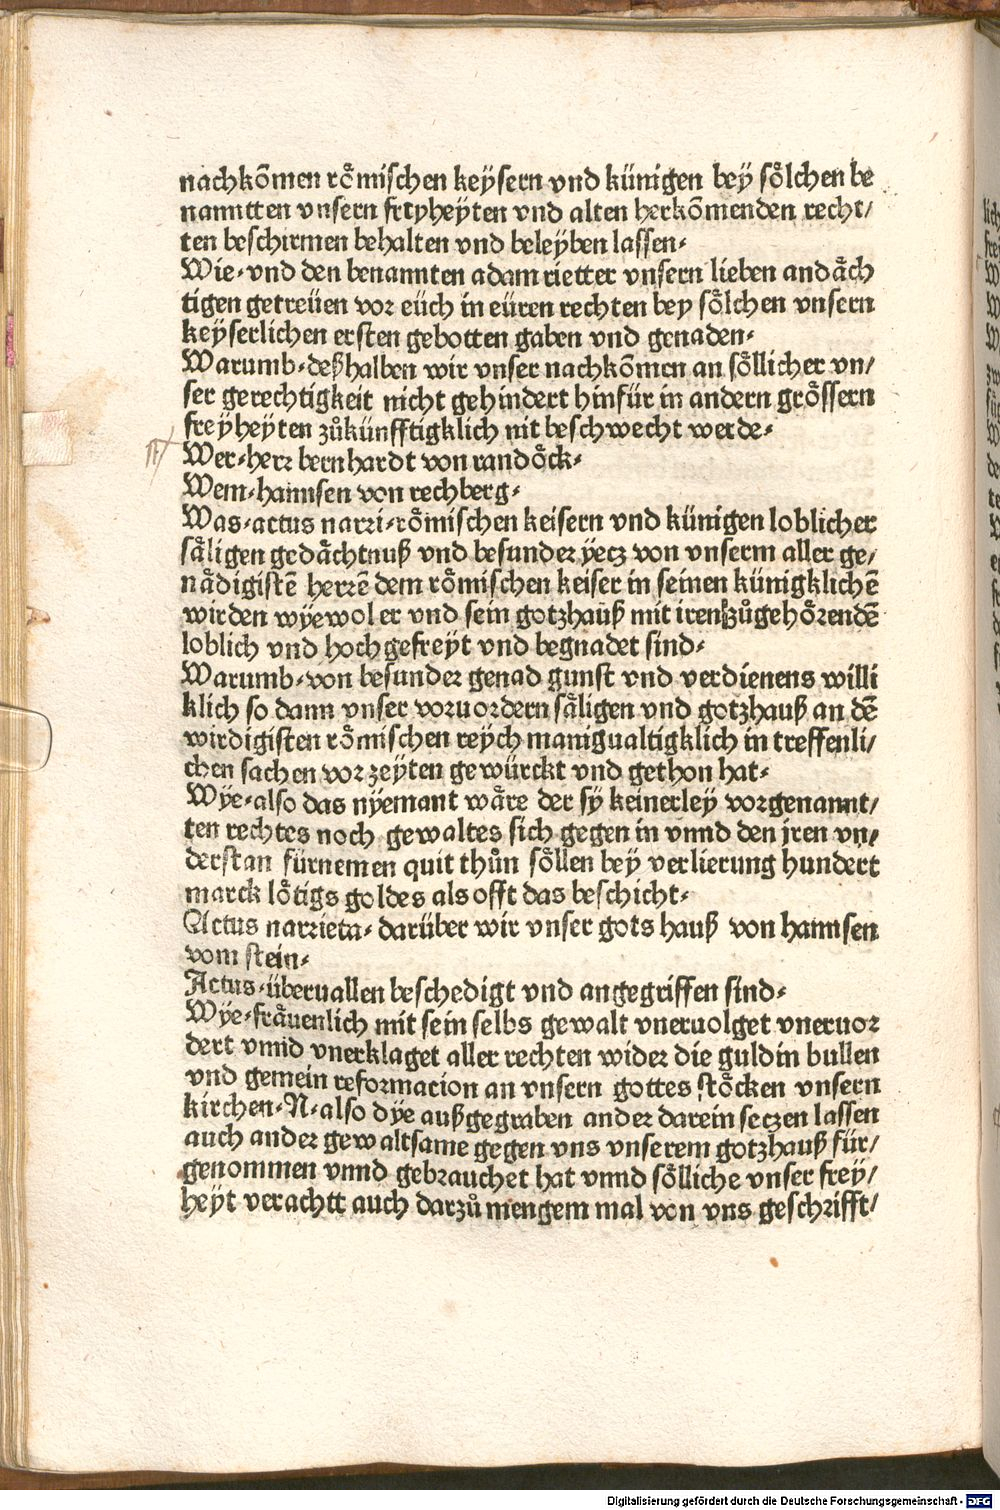 nachkōmen rö̈mischen keÿsern vnd künigen beÿ söllchen be
nanntten vnsern freyheÿten vnd alten herkōmenden recht/
ten beschirmen behalten vnd beleÿben lassen-
Wie-vnd den benannten adam rietter vnsern lieben andåch
tigen getreüen vor eüch in eüren rechten bey sölchen vnsern
keÿserlichen ersten gebotten gaben vnd genaden-
Warumb-deßhalben wir vnser nachkōmen an söllicher vn/
ser gerechtigkeit nicht gehindert hinfür in andern grössern
freÿheÿten zůkünfftigklich nit beschwecht werde-
Wer-herr bernhardt von randöck-
Wem-hannsen von rechberg-
Was-actus narri-römischen keisern vnd künigen loblicher
såligen gedåchtnuß vnd besunder ÿecz von vnserm aller ge/
nådigistē herrē dem römischen keiser in seinen künigklichē
wirden wÿewol er vnd sein gotzhauß mit iren zůgehörendē
loblich vnd hochgefreÿt vnd begnadet sind-
Warumb-von besunder genad gunst vnd verdienens willi
klich so dann vnser voruordern såligen vnd gotzhauß an dē
wirdigisten römischen reÿch manigualtigklich in treffenli/
chen sachen vor zeÿten gewürckt vnd gethon hat-
Wÿe-also das nÿemant wåre der sÿ keinerleÿ vorgenannt/
ten rechtes noch gewaltes sich gegen in vnnd den jren vn/
derstan fürnemen quit thůn söllen beÿ verlierung hundert
marck lötigs goldes als offt das beschicht-
Actus narrieta-darüber wir vnser gots hauß von hannsen
vom stein-
Actus-überuallen beschedigt vnd angegriffen sind-
Wÿe-fråuenlich mit sein selbs gewalt vneruolget vneruor
dert vnnd vnerklaget aller rechten wider die guldin bullen
vnd gemein reformacion an vnsern gottes stöcken vnsern
kirchen-N-also dÿe außgegraben ander darein seczen lassen
auch ander gewaltsame gegen vns vnserem gotzhauß für/
genommen vnnd gebrauchet hat vnnd sölliche vnser frey/
heÿt verachtt auch darzů mengem mal von vns geschrifft/
Digitalisierung gefördert durch die Deutsche Forschungsgemeinschaft - DFG